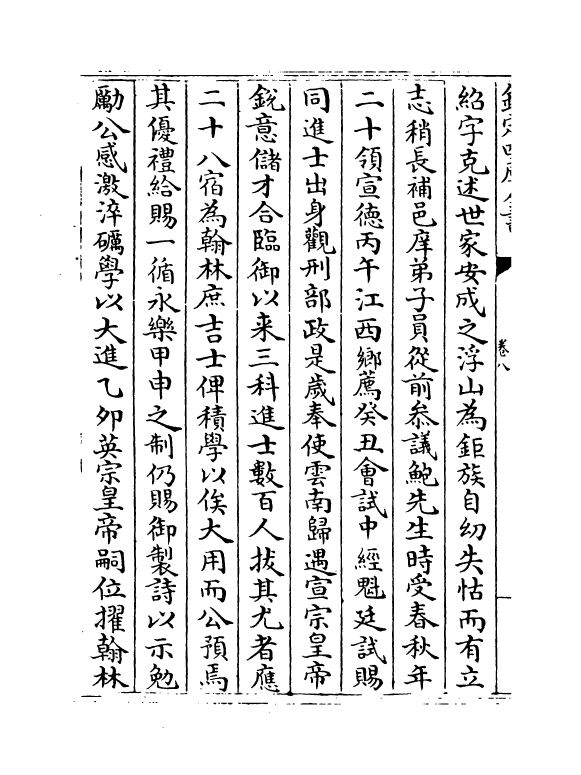 欽定四庫全書
卷八
紹字克述世家安成之浮山為鉅族自幼失怙而有立
志稍長補邑庠弟子員從前叅議鮑先生時受春秋年
二十領宣德丙午江西鄉薦癸丑會試中經魁廷試賜
同進士出身觀刑部政是歲奉使雲南歸遇宣宗皇帝
銳意儲才合臨御以来三科進士數百人拔其尤者應
二十八宿為翰林庶吉士俾積學以俟大用而公預焉
其優禮給賜一循永樂甲申之制仍賜御製詩以示勉
勵公感激淬礪學以大進乙夘英宗皇帝嗣位擢翰林